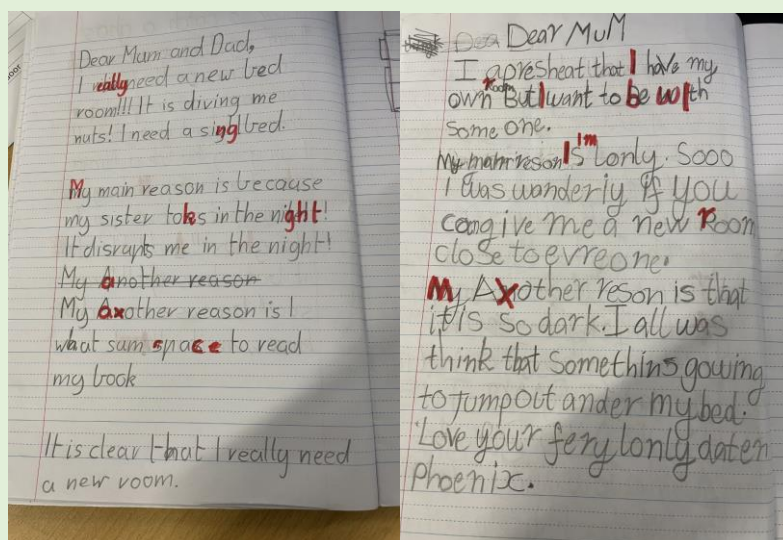 Dear Mum and Dad,
I really need a new bed
room!!! It is diving me
nuts! I need a singl bed.
My main reason is because
my sister toks in the night!
It disrupts me in the night!
My another reason
My Axother reason is I
what sum space to read
my book
It is clear that I really need
a new room.
Dear MuM
I apresheat that I have my
own room But I want to be with
some one.
My main reson Is I'm lonly. Sooo
I was wanderiy if you
can give me a new Room
close to evreone.
My Axother reson is that
it is so dark. I all was
think that somethins gowing
to jump out ander my bed.
Love your fery lonly dater
Phoenix.